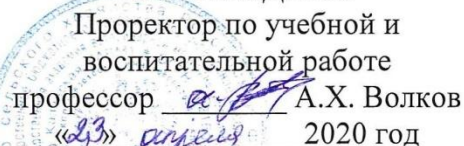 Проректор по учебной и
воспитательной работе
профессор ________ А.Х. Волков
«23» апреля 2020 год